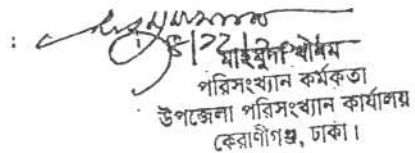 :
মাহমুদা খানম
পরিসংখ্যান কর্মকর্তা
উপজেলা পরিসংখ্যান কার্যালয়
কেরাণীগঞ্জ, ঢাকা।